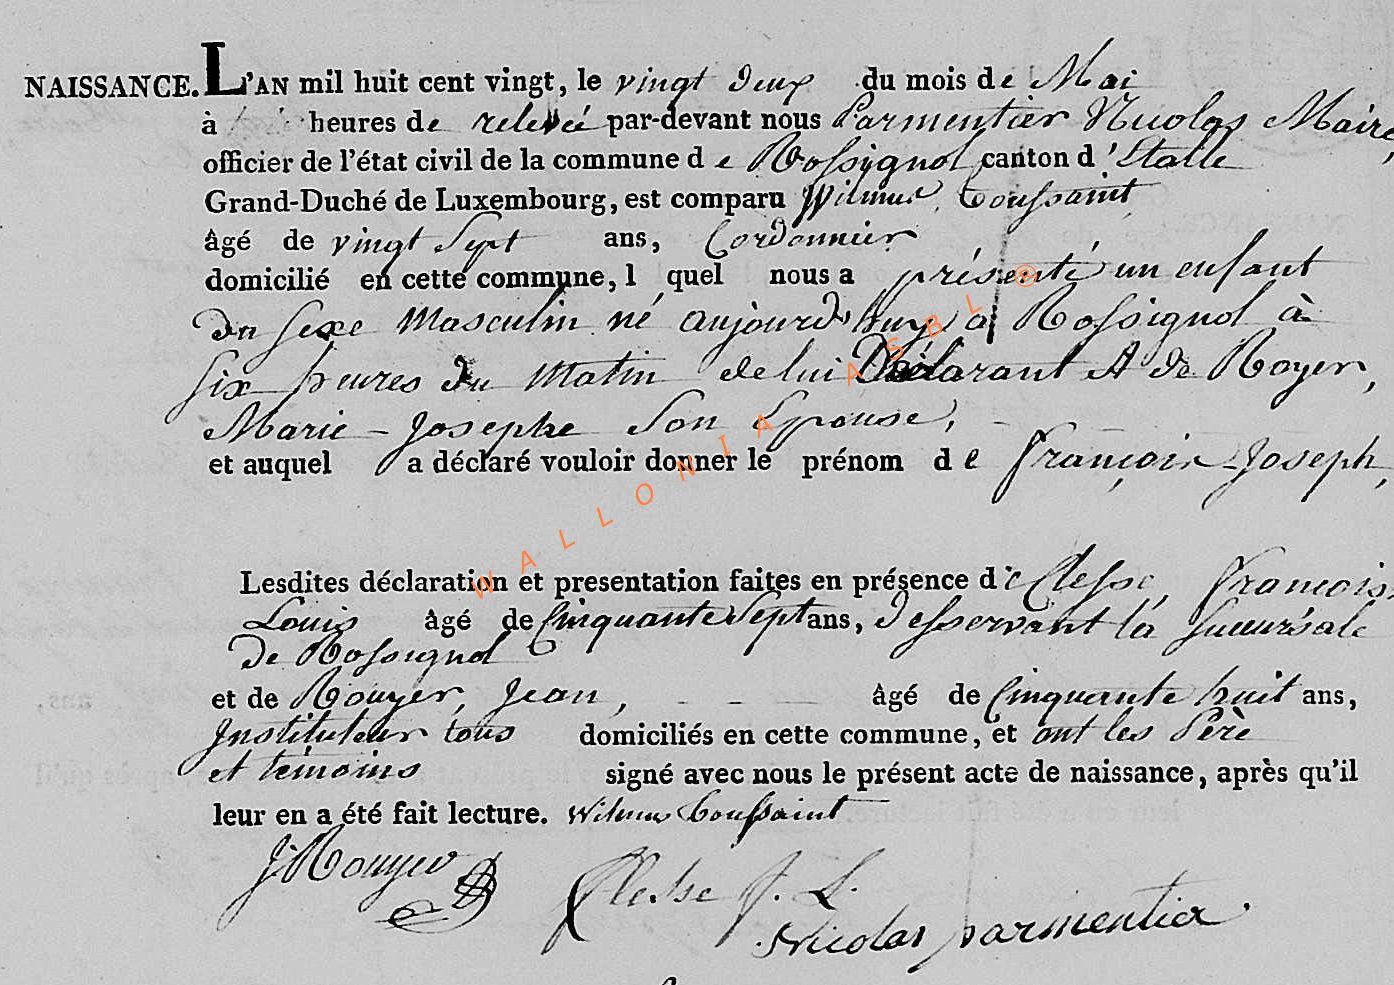 NAISSANCE. L'AN mil huit cent vingt, le vingt deux du mois de Mai
à heures de relevée par-devant nous Parmentier Nicolas Maire,
officier de l'état civil de la commune de Rossignol canton d'Etalle
Grand-Duché de Luxembourg, est comparu Wilmus, Toussaint
âgé de vingt Sept ans, Cordonnier
domicilié en cette commune, l quel nous a présenté un enfant
du sexe Masculin né aujourd'huy à Rossignol à
six heures du Matin de lui Déclarant & de Royer,
Marie-Josephe Son Epouse,
et auquel a déclaré vouloir donner le prénom de François-Joseph,
Lesdites déclaration et presentation faites en présence de Clesse, François
Louis âgé de Cinquante Sept ans, desservant la Succursale
de Rossignol
et de Rouyer, Jean, - - - âgé de Cinquante huit ans,
Instituteur tous domiciliés en cette commune, et ont les Père
et témoins signé avec nous le présent acte de naissance, après qu'il
leur en a été fait lecture. Wilmus Toussaint
J. Rouyer
Clesse f. L.
Nicolas parmentier
WALLONIA ASBL ©